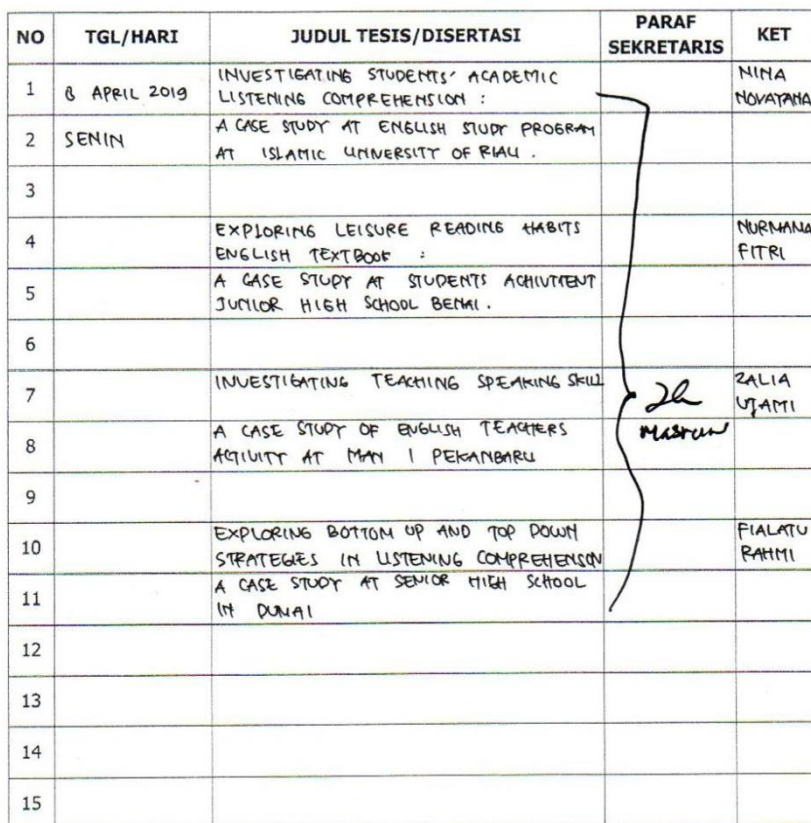 NO TGL/HARI JUDUL TESIS/DISERTASI PARAF SEKRETARIS KET
1 8 APRIL 2019 INVESTIGATING STUDENTS' ACADEMIC NINA
LISTENING COMPREHENSION : NOVAYANA
2 SENIN A CASE STUDY AT ENGLISH STUDY PROGRAM
AT ISLAMIC UNIVERSITY OF RIAU .
3
4 EXPLORING LEISURE READING HABITS NURMANA
ENGLISH TEXTBOOK : FITRI
5 A CASE STUDY AT STUDENTS
JUNIOR HIGH SCHOOL BENAI .
6
7 INVESTIGATING TEACHING SPEAKING SKILL ZALIA
UTAMI
8 A CASE STUDY OF ENGLISH TEACHERS Masrun
ACTIVITY AT MAN 1 PEKANBARU
9
10 EXPLORING BOTTOM UP AND TOP DOWN FIALATU
STRATEGIES IN LISTENING COMPREHENSON RAHMI
11 A CASE STUDY AT SENIOR HIGH SCHOOL
IN DUMAI
12
13
14
15